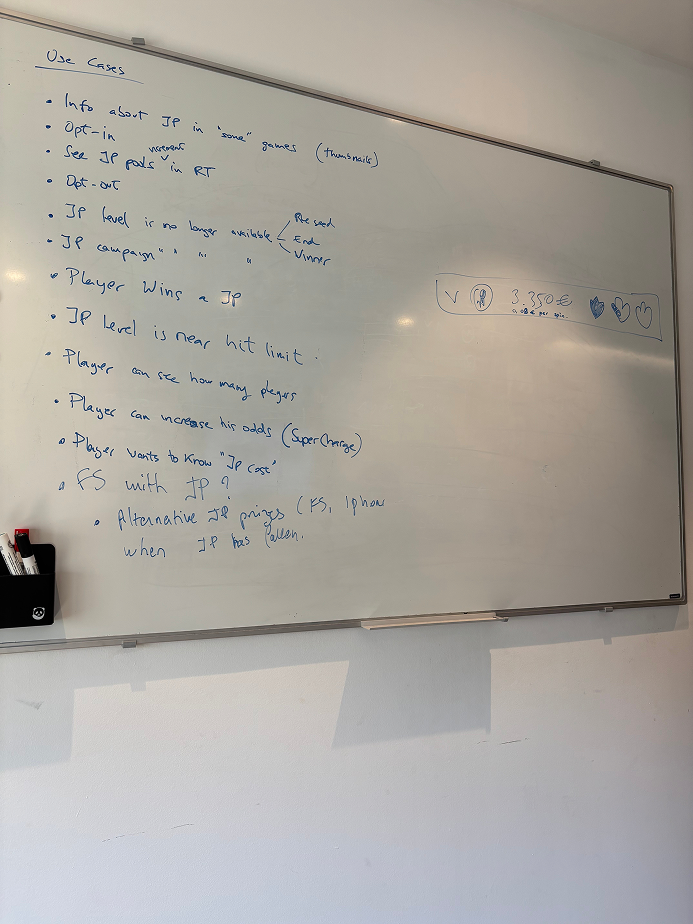 Use Cases
• Info about JP in "some" games (thumbnails)
• Opt-in
increment
• See JP pods in RT
• Opt-out
• JP level is no longer available
Re seed
End
Vinner
• JP campaign " " " "
• Player wins a JP
• JP Level is near hit limit.
• Player can see how many players
• Player can increase his odds (Supercharge)
• Player wants to know "JP cost"
• FS with JP?
• Alternative JP prizes (FS, Iphone
when JP has fallen.
V 3.350€
0,08€ per spin.